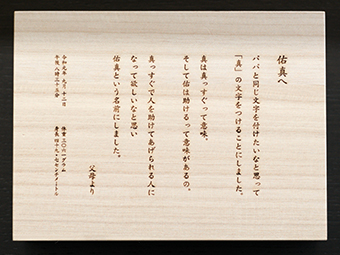 佑真へ
パパと同じ文字を付けたいなと思って
「真」の文字をつけることにしました。
真は真っすぐって意味、
そして佑は助けるって意味があるの。
真っすぐで人を助けてあげられる人に
なって欲しいなと思い
佑真という名前にしました。
父母より
令和元年 九月十二日
午後 八時三十三分
体重 三〇六一グラム
身長 四十九・七センチメートル